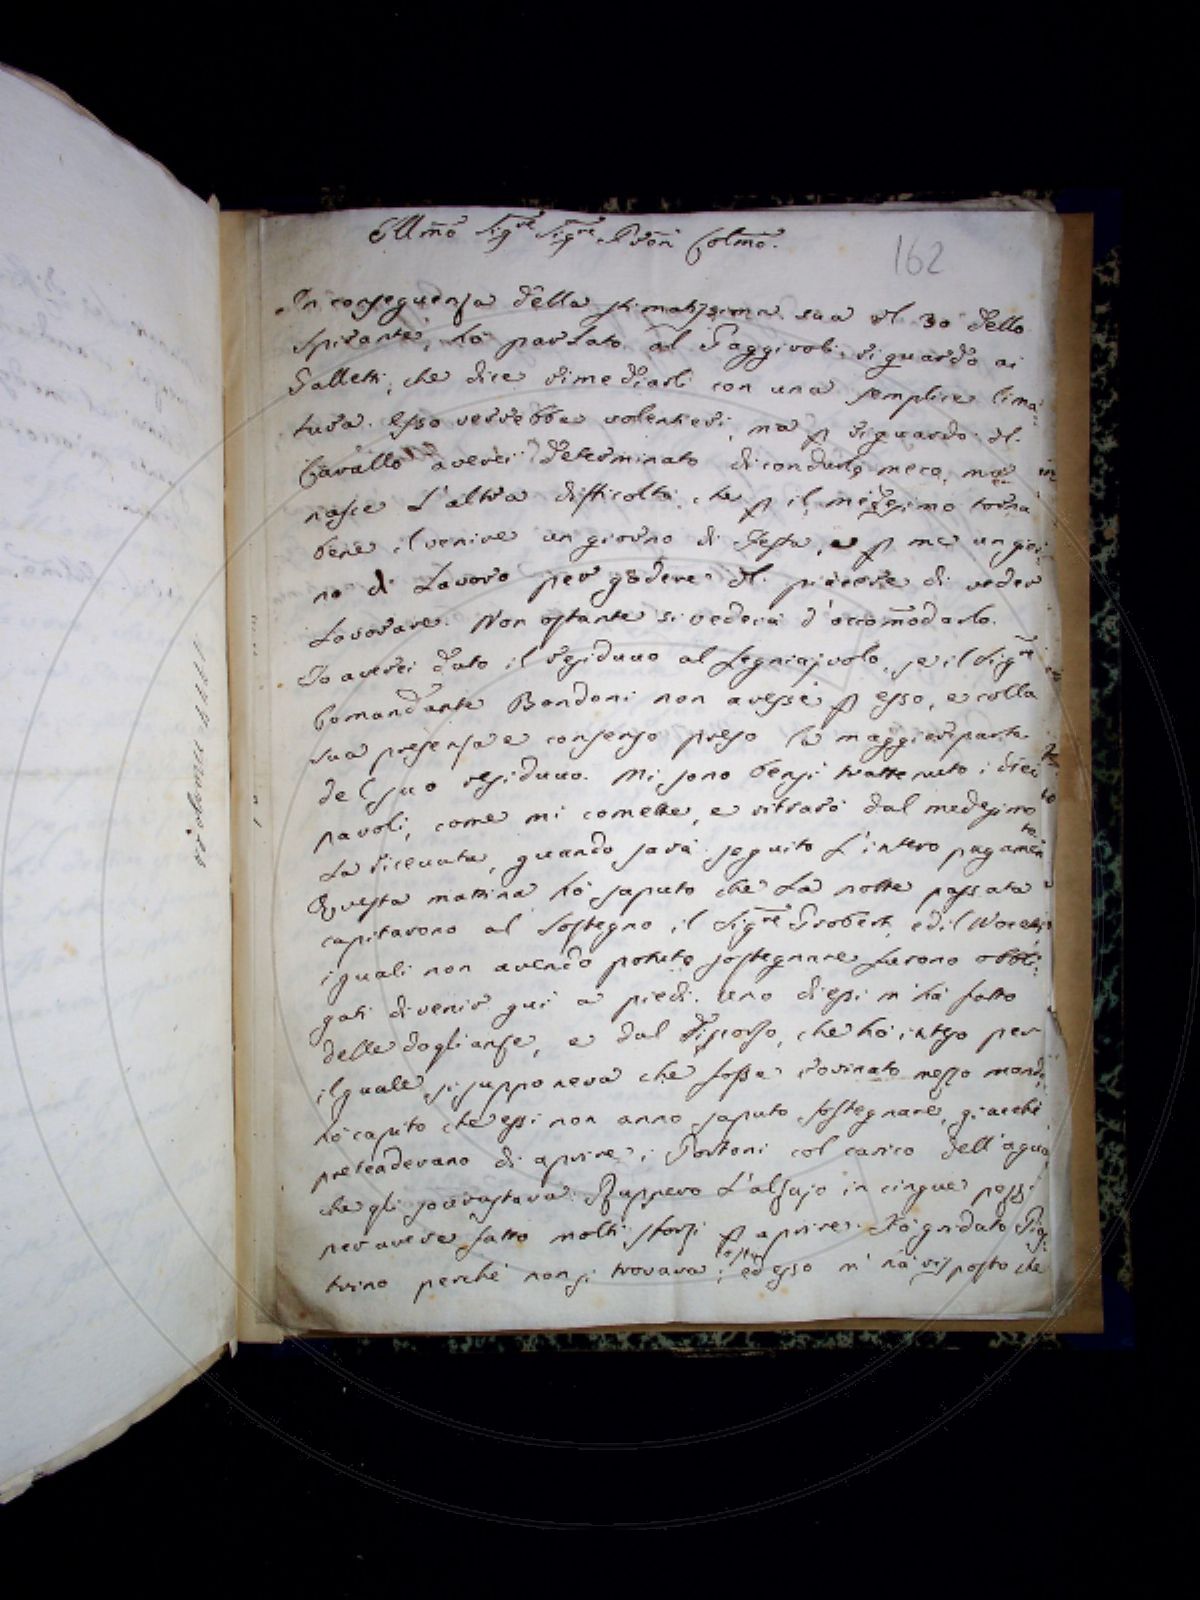 Ill͞mo Sig.re Sig.re P͞ron Col͞mo.
162
In conseguenza della stimatissima sua del 30 dello
spirante, hò parlato al Paggivoli riguardo ai
Galletti, che dice rimediarli con una semplice lima:
tura. Esso verrebbe volentieri, ma p riguardo del
Cavallo averei determinato di condurlo meco, ma
nasce l'altra difficoltà, che p il medesimo torna
bene il venire un giorno di Festa, e p me un gior:
no di Lavoro per godere del piacere di veder
Lavorare. Non ostante si vederà d'accom͞odarlo.
Io averei dato il residuuo al Legniajuolo, se il Sig.re
Comandante Bondoni non avesse p esso, e colla
sua presenza e consenso preso la maggior parte
del suo residuuo. Mi sono bensi trattenuto i dieci
pavoli, come mi comette, e ritrarò dal medesimo
La ricevuta, quando sarà seguito l'intero pagamen
to
Questa mattina hò saputo che La notte passata
capitarono al Sostegno il Sig.re Grobert, ed il
i quali non avendo potuto sostegnare furono obbli:
gati di venir quì a piedi. Uno di essi m'hà fatto
delle doglianze, e dal discorso, che hò inteso per
il quale si supponeva che fosse rovinato mezzo mondo,
hò capito che essi non anno saputo sostegnare, giacchè
pretendevano di aprire i Portoni col carico dell'aqua,
che gli sovrastava. Ruppero l'alzajo in cinque pezzi
per avere fatto molti sforzi p aprire. Hò gridato
trino perchè non si trovava costì, ed esso m'hà risposto che